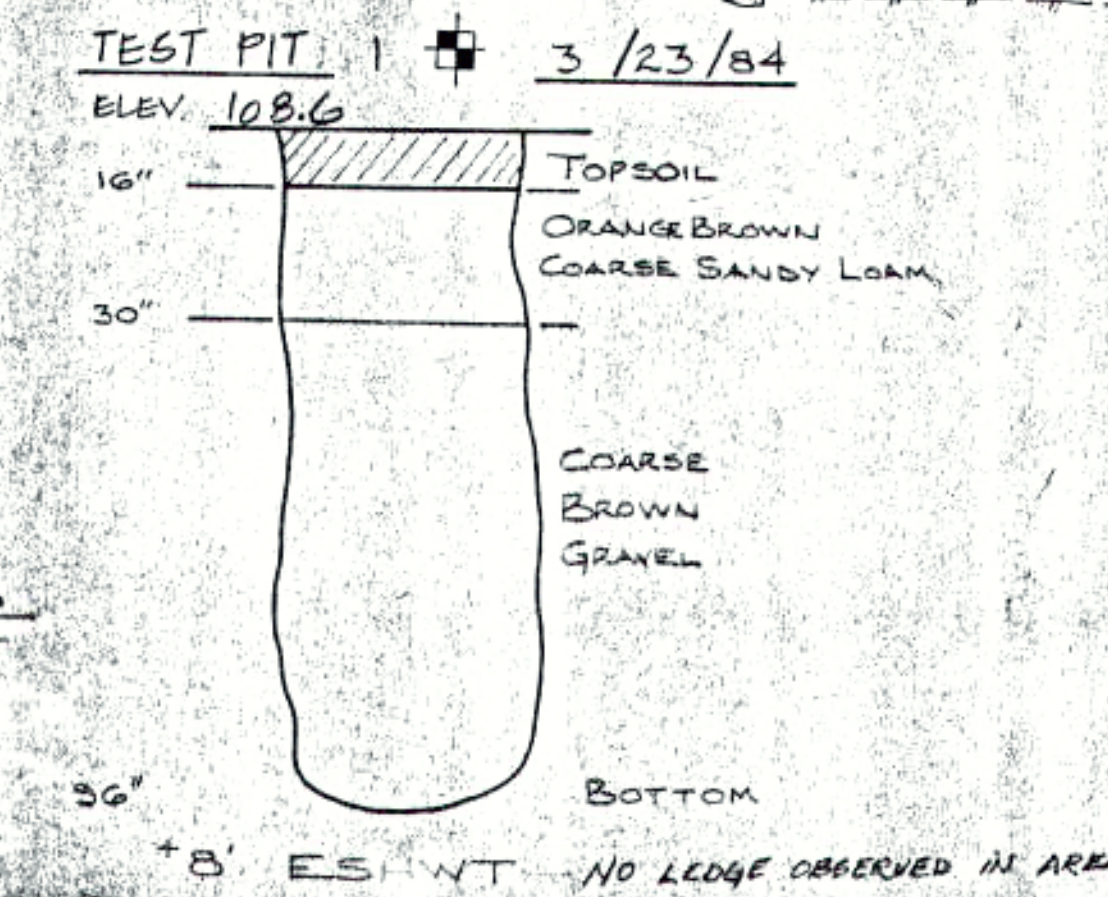 TEST PIT 1 3/23/84
ELEV. 108.6
16" TOPSOIL
ORANGE BROWN
COARSE SANDY LOAM
30"
COARSE
BROWN
GRAVEL
96" BOTTOM
+8' ESHWT NO LEDGE OBSERVED IN